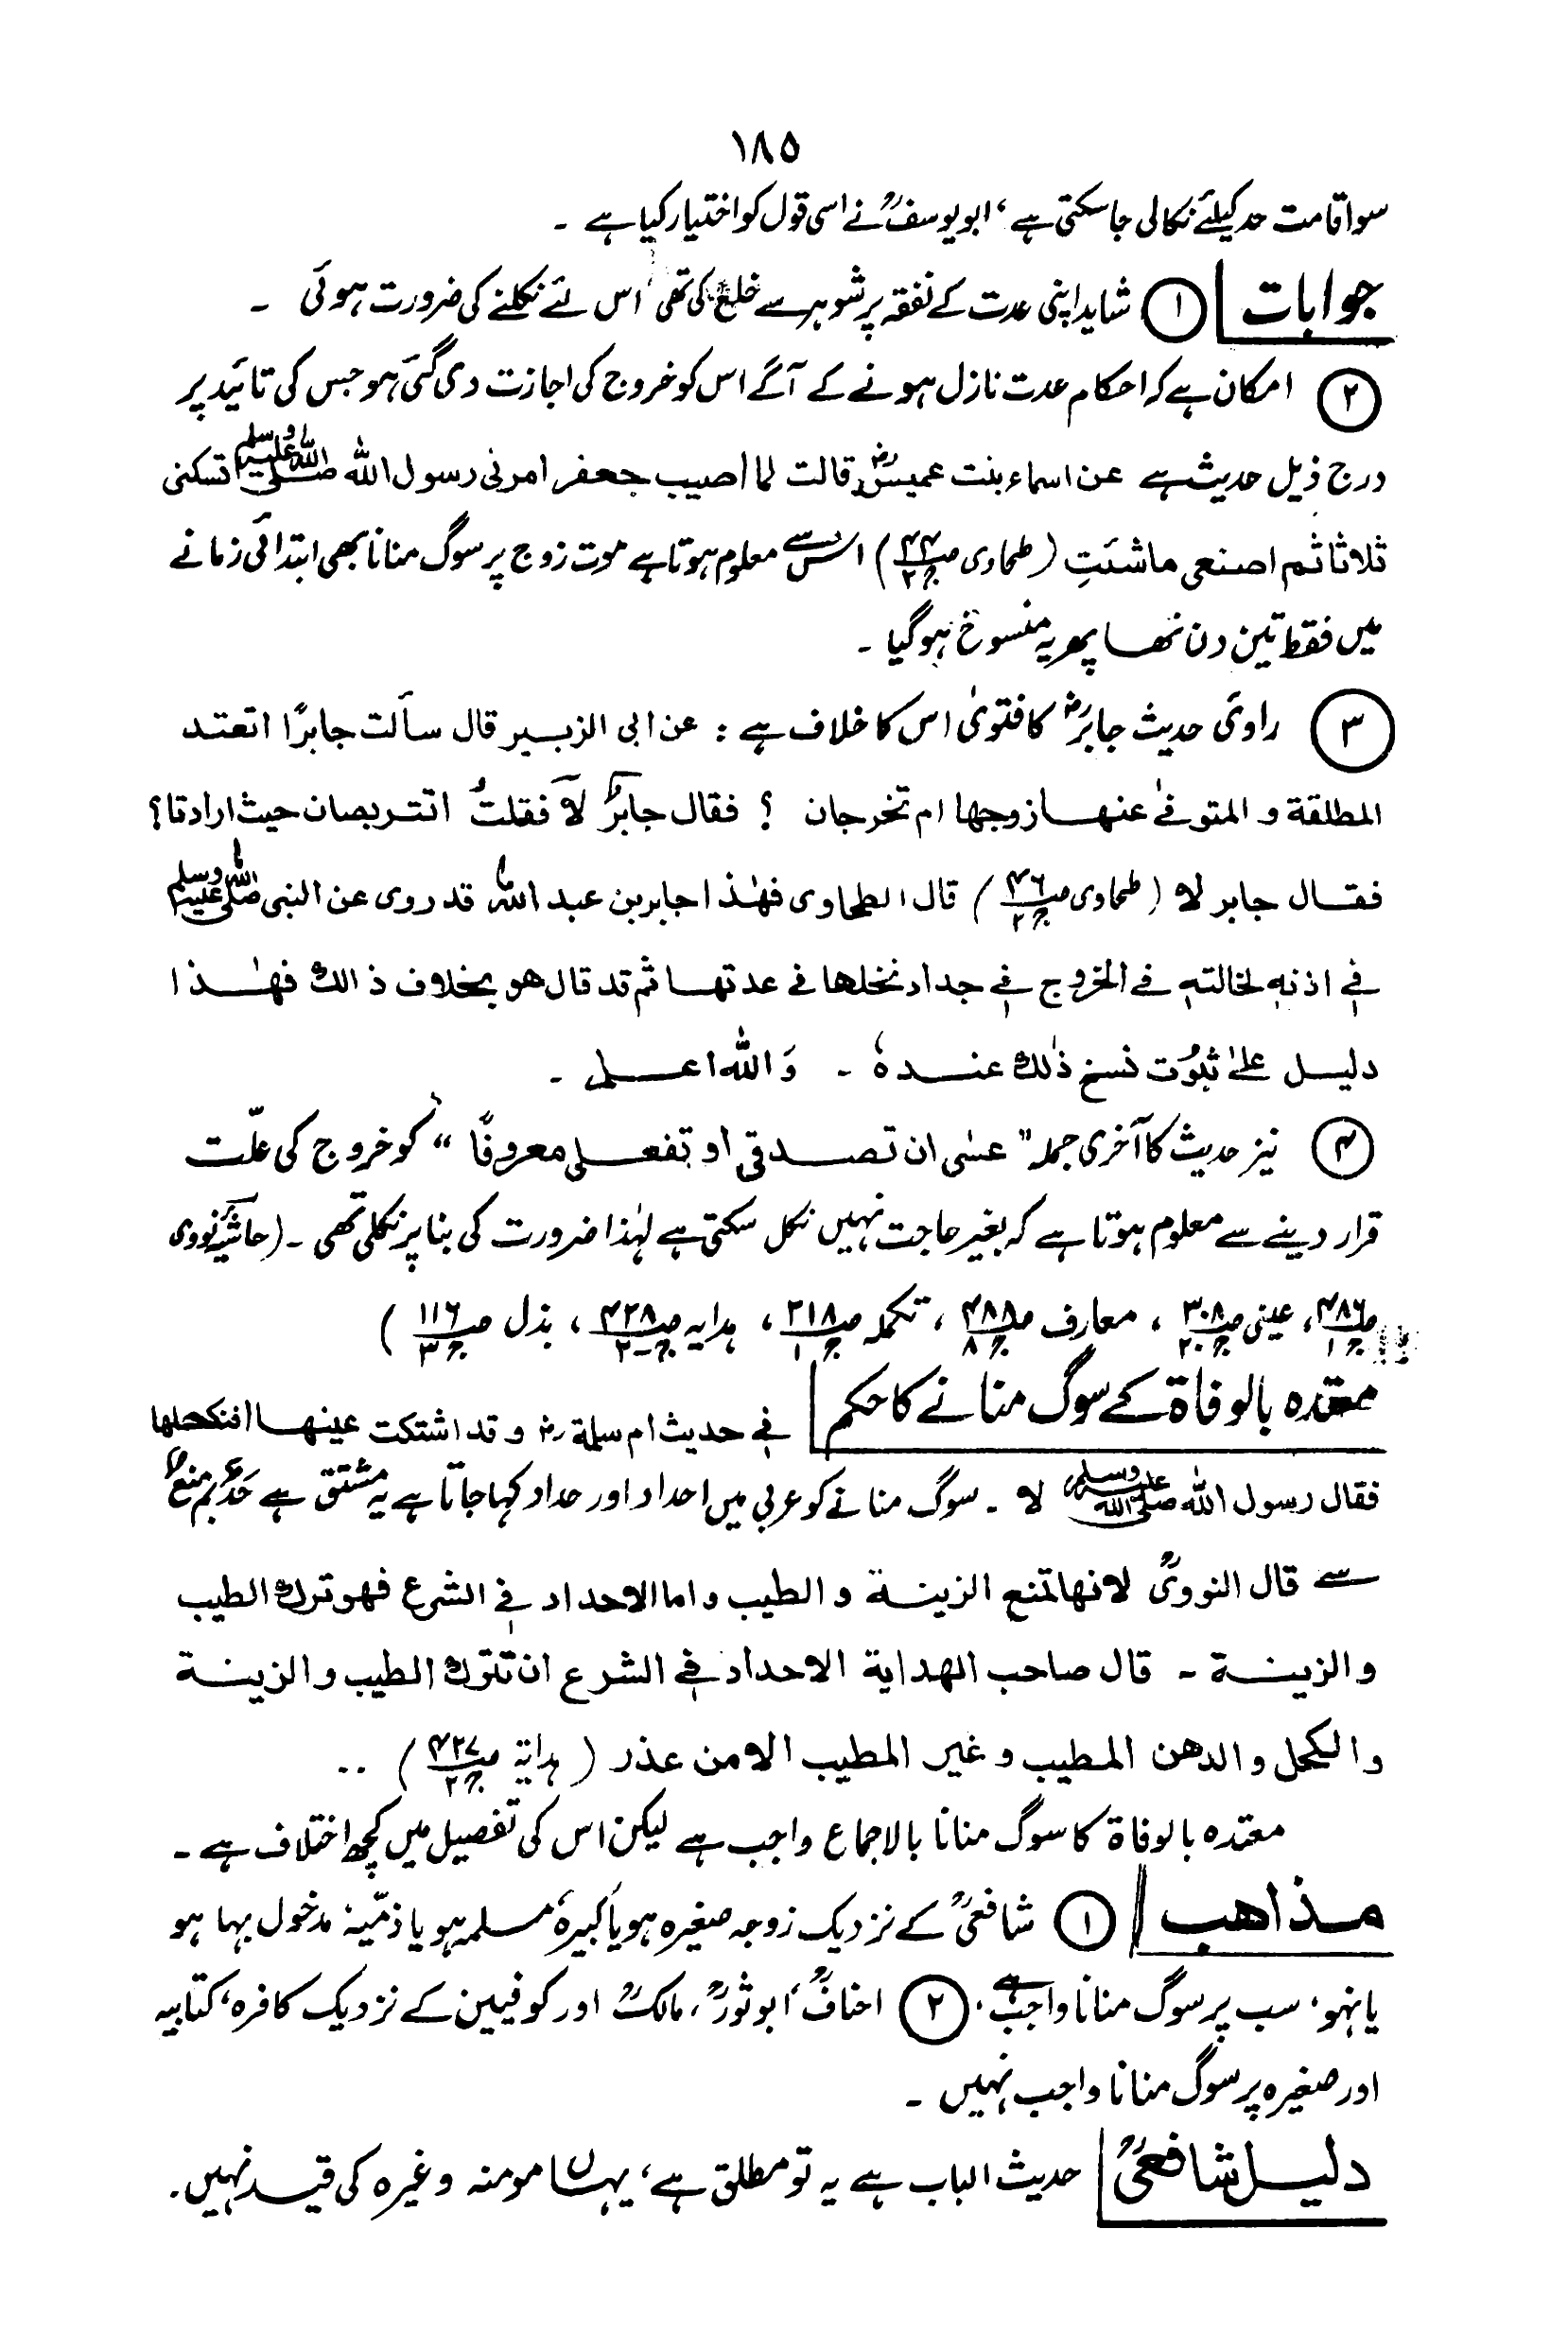 ۱۸۵
سوا قامت حد کیلئے نکالی جا سکتی ہے، ابو یوسفؒ نے اسی قول کو اختیار کیا ہے ۔
جوابات ① شاید اپنی عدت کے نفقہ پر شوہر سے خلع کی تھی اس لئے نکلنے کی ضرورت ہوئی ۔
② امکان ہے کہ احکام عدت نازل ہونے کے آگے اس کو خروج کی اجازت دی گئی ہو جس کی تائید پر
درج ذیل حدیث ہے عن اسماء بنت عمیسؓ قالت لما اصیب جعفر امرنی رسول اللہ صلی اللہ علیہ وسلم تسکنی
ثلاثا ثم اصنعی ما شئتِ (طحاوی ص۴۴ ج۲) اس سے معلوم ہوتا ہے موت زوج پر سوگ منانا بھی ابتدائی زمانے
میں فقط تین دن تھا پھر یہ منسوخ ہو گیا ۔
③ راوئ حدیث جابرؓ کا فتویٰ اس کا خلاف ہے : عن ابی الزبیر قال سألت جابرًا اتعتد
المطلقة و المتوفیٰ عنها زوجها ام تخرجان ؟ فقال جابرؓ لا فقلتُ اتتربصان حیث ارادتا؟
فقال جابر لا (طحاوی ص۴۶ ج۲) قال الطحاوی فهٰذا جابر بن عبد اللہؓ قد روی عن النبی صلی اللہ علیہ وسلم
فی اذنہ لخالتہ فی الخروج فی جداد نخلها فی عدتها ثم قد قال هو بخلاف ذالك فهٰذا
دلیل علیٰ ثبوت نسخ ذٰلك عندهٗ ۔ وَاللہ اعلم ۔
④ نیز حدیث کا آخری جملہ " عسٰی ان تصدقی او تفعلی معروفًا " کو خروج کی علّت
قرار دینے سے معلوم ہوتا ہے کہ بغیر حاجت نہیں نکل سکتی ہے لہٰذا ضرورت کی بنا پر نکلی تھی ۔ (حاشیۂ نووی
ص۴۸۶ ج۱، عینی ص۳۰۸ ج۲۰، معارف ص۴۸۸ ج۸، تکملہ ص۲۱۸ ج۱، ہدایہ ص۴۲۸ ج۲، بذل ص۱۱۶ ج۳ )
معتدہ بالوفاة کے سوگ منانے کا حکم فی حدیث ام سلمة رض و قد اشتکت عینها افنکحلها
فقال رسول اللہ صلی اللہ علیہ وسلم لا ۔ سوگ منانے کو عربی میں احداد اور حداد کہا جاتا ہے یہ مشتق ہے حَدٌّ بمٖ منعٌ
سے قال النوویؒ لانها تمنع الزینة و الطیب و اما الاحداد فی الشرع فهو ترك الطیب
والزینة ۔ قال صاحب الهدایة الاحداد فی الشرع ان تترك الطیب و الزینة
والکحل و الدهن المطیب و غیر المطیب الا من عذر (ہدایة ص۴۲۷ ج۲) ..
معتدہ بالوفاة کا سوگ منانا بالاجماع واجب ہے لیکن اس کی تفصیل میں کچھ اختلاف ہے ۔
مذاهب ① شافعیؒ کے نزدیک زوجہ صغیرہ ہو یا کبیرہ، مسلمہ ہو یا ذمّیہ، مدخول بہا ہو
یا نہو، سب پر سوگ منانا واجب ہے، ② احنافؒ، ابو ثورؒ، مالکؒ اور کوفیین کے نزدیک کافرہ، کتابیہ
اور صغیرہ پر سوگ منانا واجب نہیں ۔
دلیل شافعیؒ حدیث الباب ہے یہ تو مطلق ہے، یہاں مومنہ وغیرہ کی قید نہیں ۔